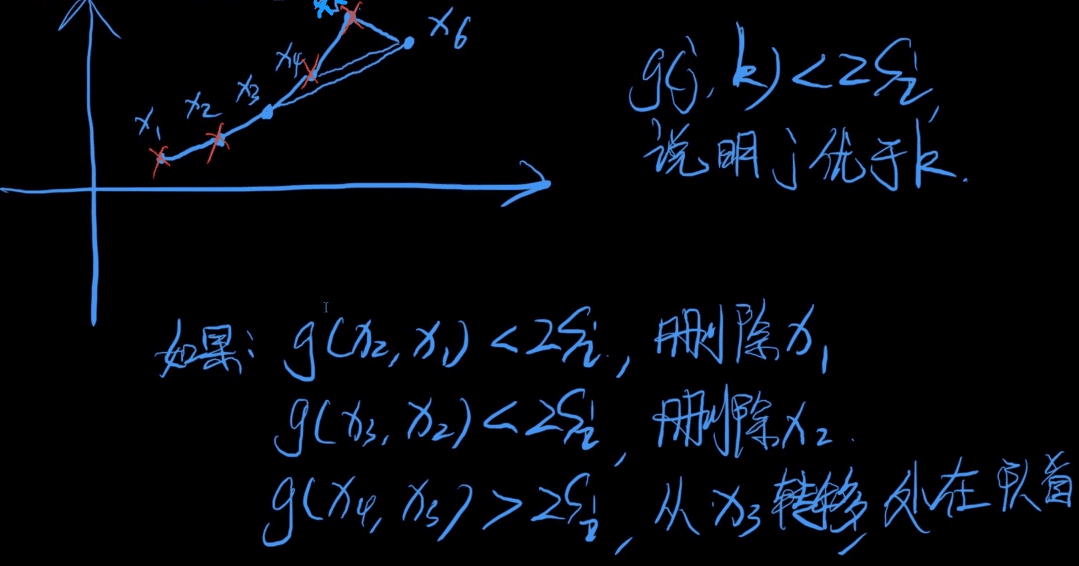 x5
x6
x4
x3
x2
x1
g(j, k) < 2Si,
说明j优于k.
如果: g(x2, x1) < 2Si, 删除x1
g(x3, x2) < 2Si, 删除x2.
g(x4, x3) > 2Si, 从x3转移, 处在队首